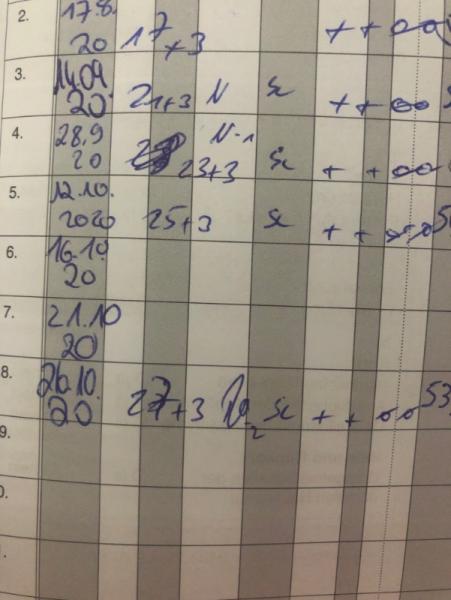 2. 17.8.
20 17+3 + + oo
3. 14.09
20 21+3 N SL + + oo
4. 28.9 N-1
20 23+3 SL + + oo
5. 12.10.
2020 25+3 SL + +
6. 16.10
20
7. 21.10
20
8. 26.10.
20 27+3 SL + + oo 53
9.